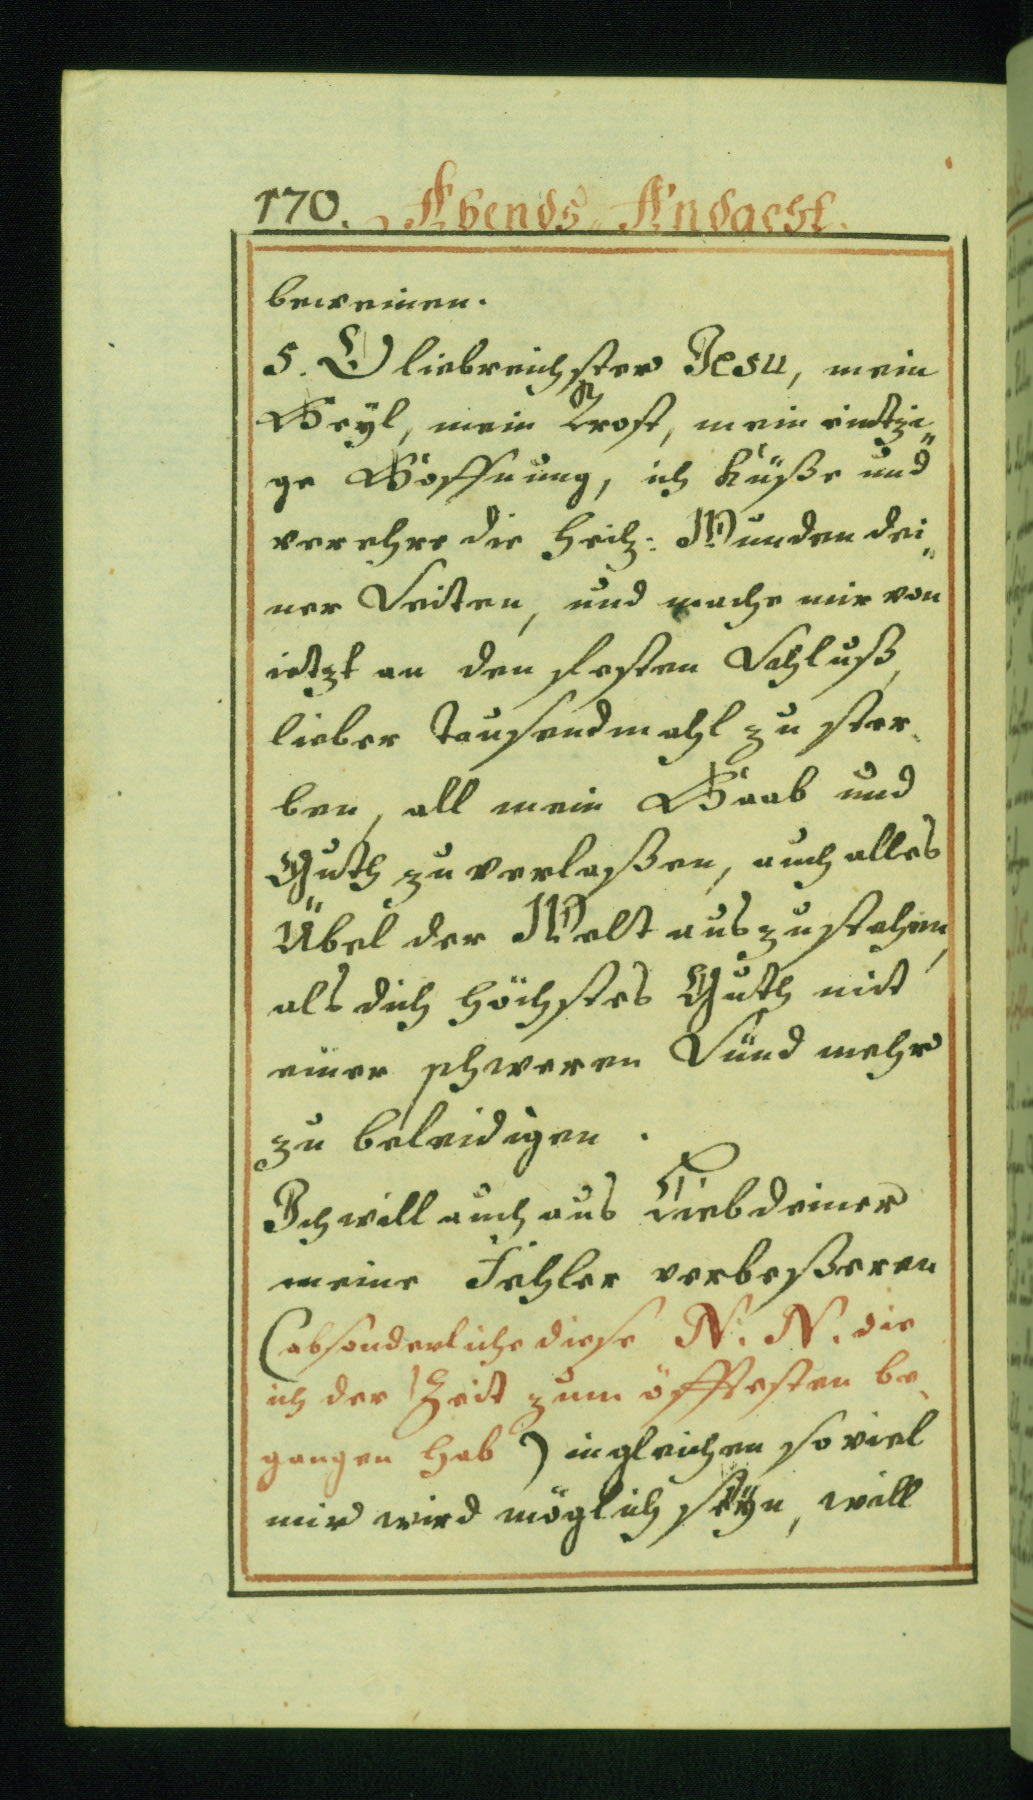 170. Abends-Andacht.
beweinen.
5. O liebreichster Jesu, mein
Heÿl, mein Trost, mein eintzi„
ge Hoffnung, ich küße und
verehre die heilg: Wunden dei„
ner Seiten, und mache mir von
ietzt an den festen Schluß,
lieber Tausendmahl zu ster„
ben, all mein Haab und
Guth zu verlaßen, auch alles
Übel der Welt auszustehen,
als dich höchstes Guth mit
einer schweren Sünd mehr
zu beleidigen.
Ich will auch aus Lieb deiner
meine Fehler verbeßeren
(absonderliche diese N. N. die
ich der Zeit zum öfftesten be„
gangen hab) ingleichen so viel
mir wird möglich seÿn, will